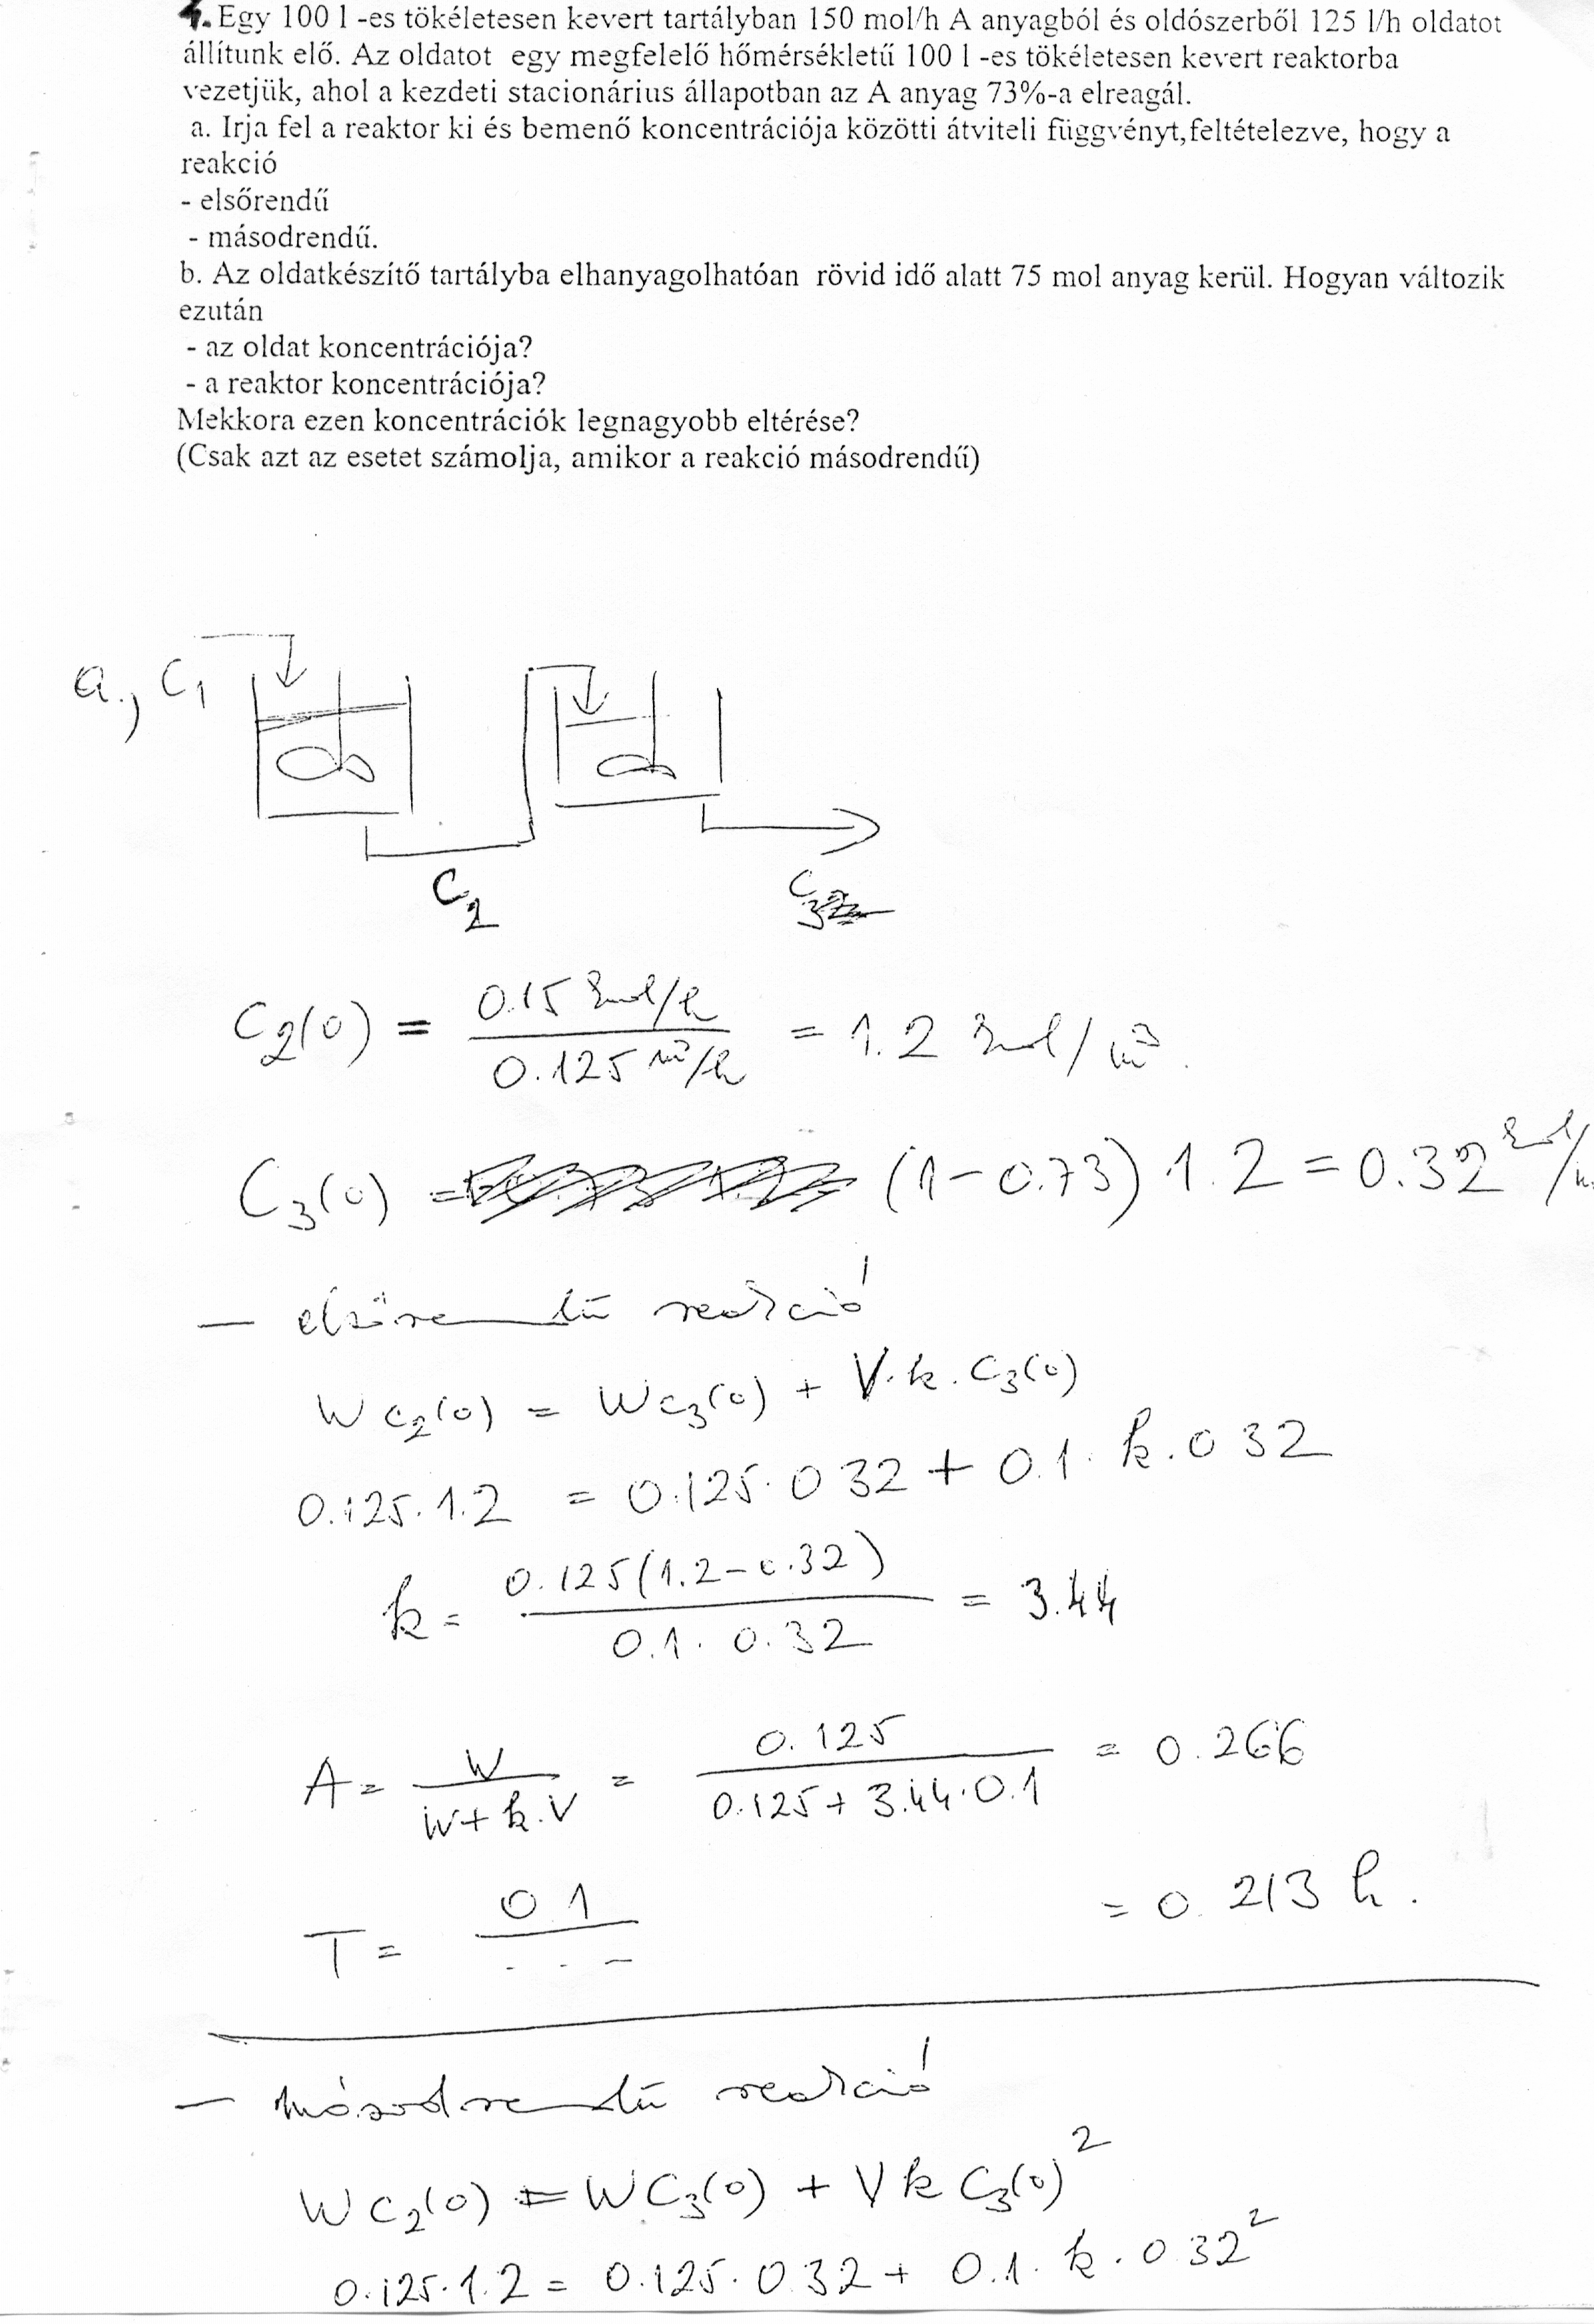 4. Egy 100 l -es tökéletesen kevert tartályban 150 mol/h A anyagból és oldószerből 125 l/h oldatot
állítunk elő. Az oldatot egy megfelelő hőmérsékletű 100 l -es tökéletesen kevert reaktorba
vezetjük, ahol a kezdeti stacionárius állapotban az A anyag 73%-a elreagál.
a. Irja fel a reaktor ki és bemenő koncentrációja közötti átviteli függvényt,feltételezve, hogy a
reakció
- elsőrendű
- másodrendű.
b. Az oldatkészítő tartályba elhanyagolhatóan rövid idő alatt 75 mol anyag kerül. Hogyan változik
ezután
- az oldat koncentrációja?
- a reaktor koncentrációja?
Mekkora ezen koncentrációk legnagyobb eltérése?
(Csak azt az esetet számolja, amikor a reakció másodrendű)
a., C1
C2
C3
C2(0) = 0.15 kmol/h / 0.125 m³/h = 1.2 kmol/m³.
C3(0) = (1-0.73) 1.2 = 0.32 kmol/
- elsőrendű reakció
W C2(0) = W C3(0) + V.k.C3(0)
0.125.1.2 = 0.125.0 32 + 0.1.k.0 32
k = 0.125(1.2-0.32) / 0.1. 0.32 = 3.44
A = W / W+k.V = 0.125 / 0.125+3.44.0.1 = 0.266
T = 0 1 / . . - = 0.213 h.
- másodrendű reakció
W C2(0) = W C3(0) + V k C3(0)²
0.125.1.2 = 0.125.0.32 + 0.1.k.0 32²